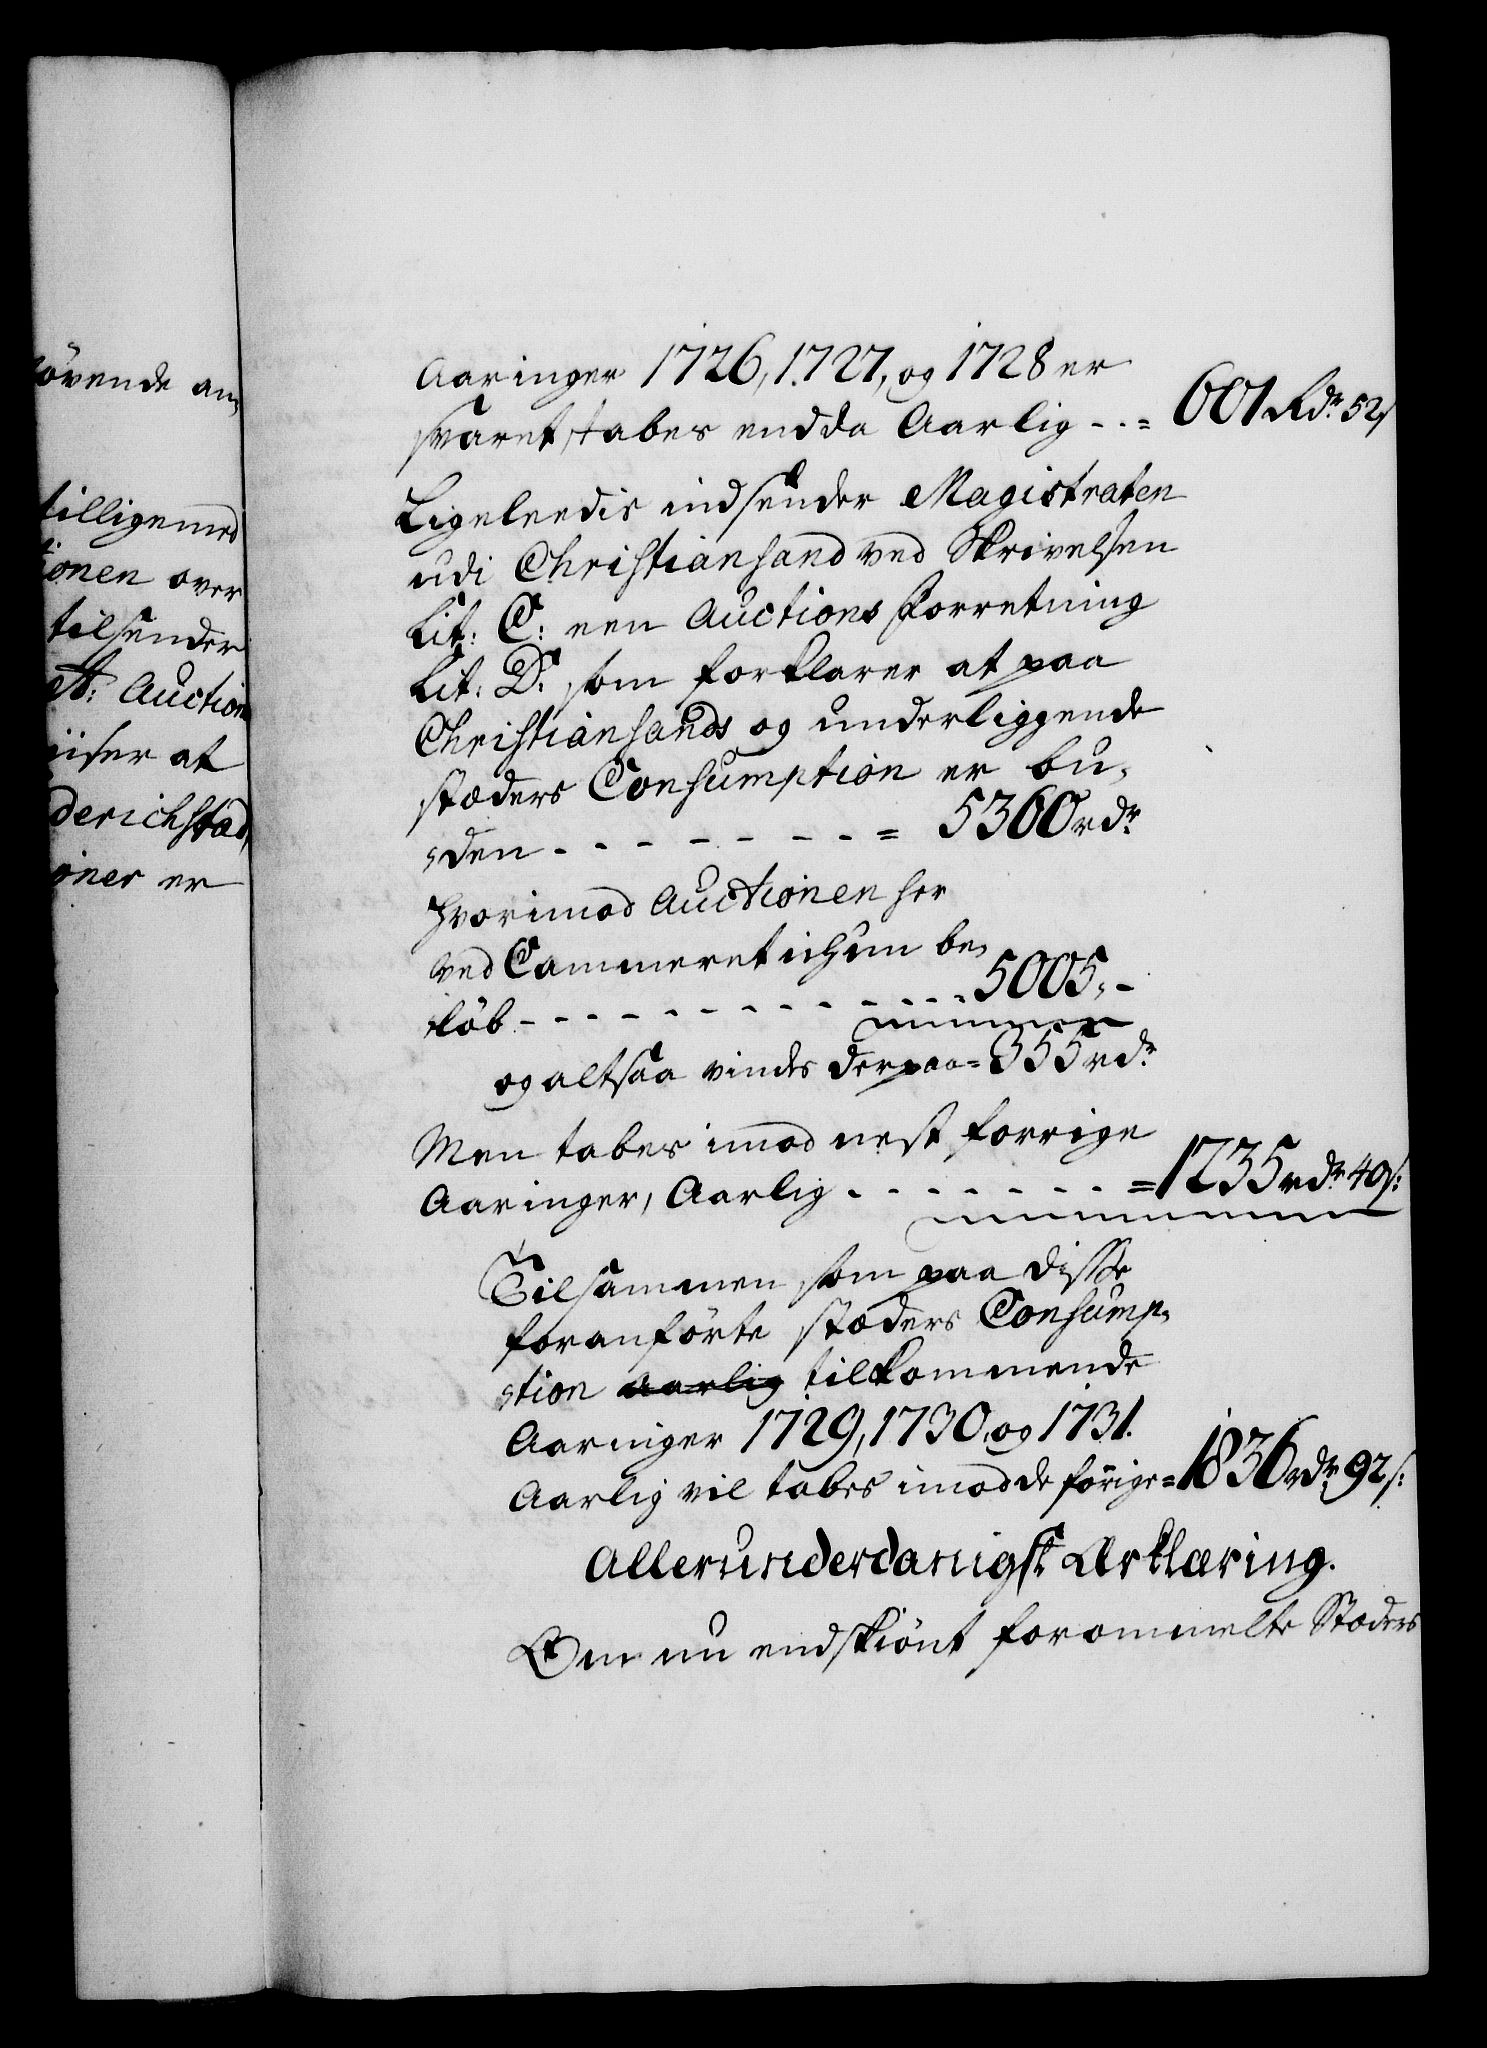 övende an¬
tilligemed
ionen over
tilsender
A: Auction
iiser at
derichstad,
oner er
Aaringer 1726, 1727, og 1728 er
svaret, tabes endda Aarlig - . = 601 Rdr 52 s
Ligeleedis indsender Magistraten
udi Christiansand ved Skrivelsen
Lit: C: een Auctions Forretning
Lit: D: som forklarer at paa
Christiansands og underliggende
stæders Consumption er bu¬
den - - - - - - - - = 5360 rdr
hvorimod Auctionen her
ved Cammeret ichun be¬
löb - - - - - - - - - - - - 5005,-
og altsaa vindes derpaa = 355 rdr
Men tabes imod nest forrige
Aaringer, Aarlig - - - - - - - = 1235 rdr 40 s:
Tilsammen som paa disse
foranförte stæders Consump¬
tion aarlig tilkommende
Aaringer 1729, 1730, og 1731.
Aarlig vil tabes imod de forrige = 1836 rdr 92 s:
Allerunderdanigst Erklæring.
Om nu endskiönt forommelte Stæders